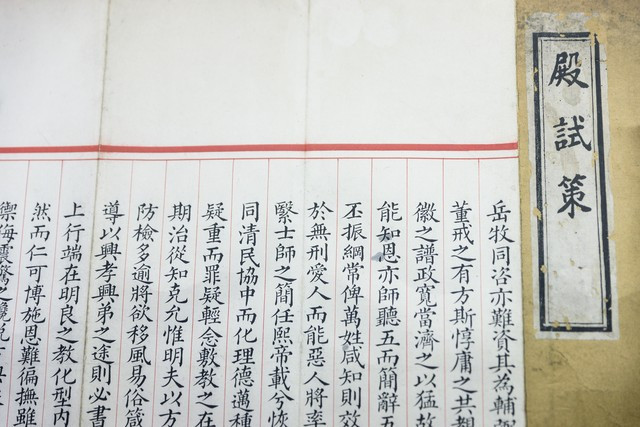 殿試策
岳牧同咨亦難資其為輔
董戒之有方斯惇庸之共
徽之譜政寬當濟之以猛故
能知恩亦師聽五而簡辭五
丕振綱常俾萬姓咸知則效
於無刑愛人而能惡人將率
繄士師之簡任熙帝載兮恢
同清民協中而化理德邁種
疑重而罪疑輕念敷教之在
期治從知克允惟明夫以方
防檢多逾將欲移風易俗箴
導以興孝興弟之途則必書
上行端在明良之教化型內
然而仁可博施恩難徧撫雖